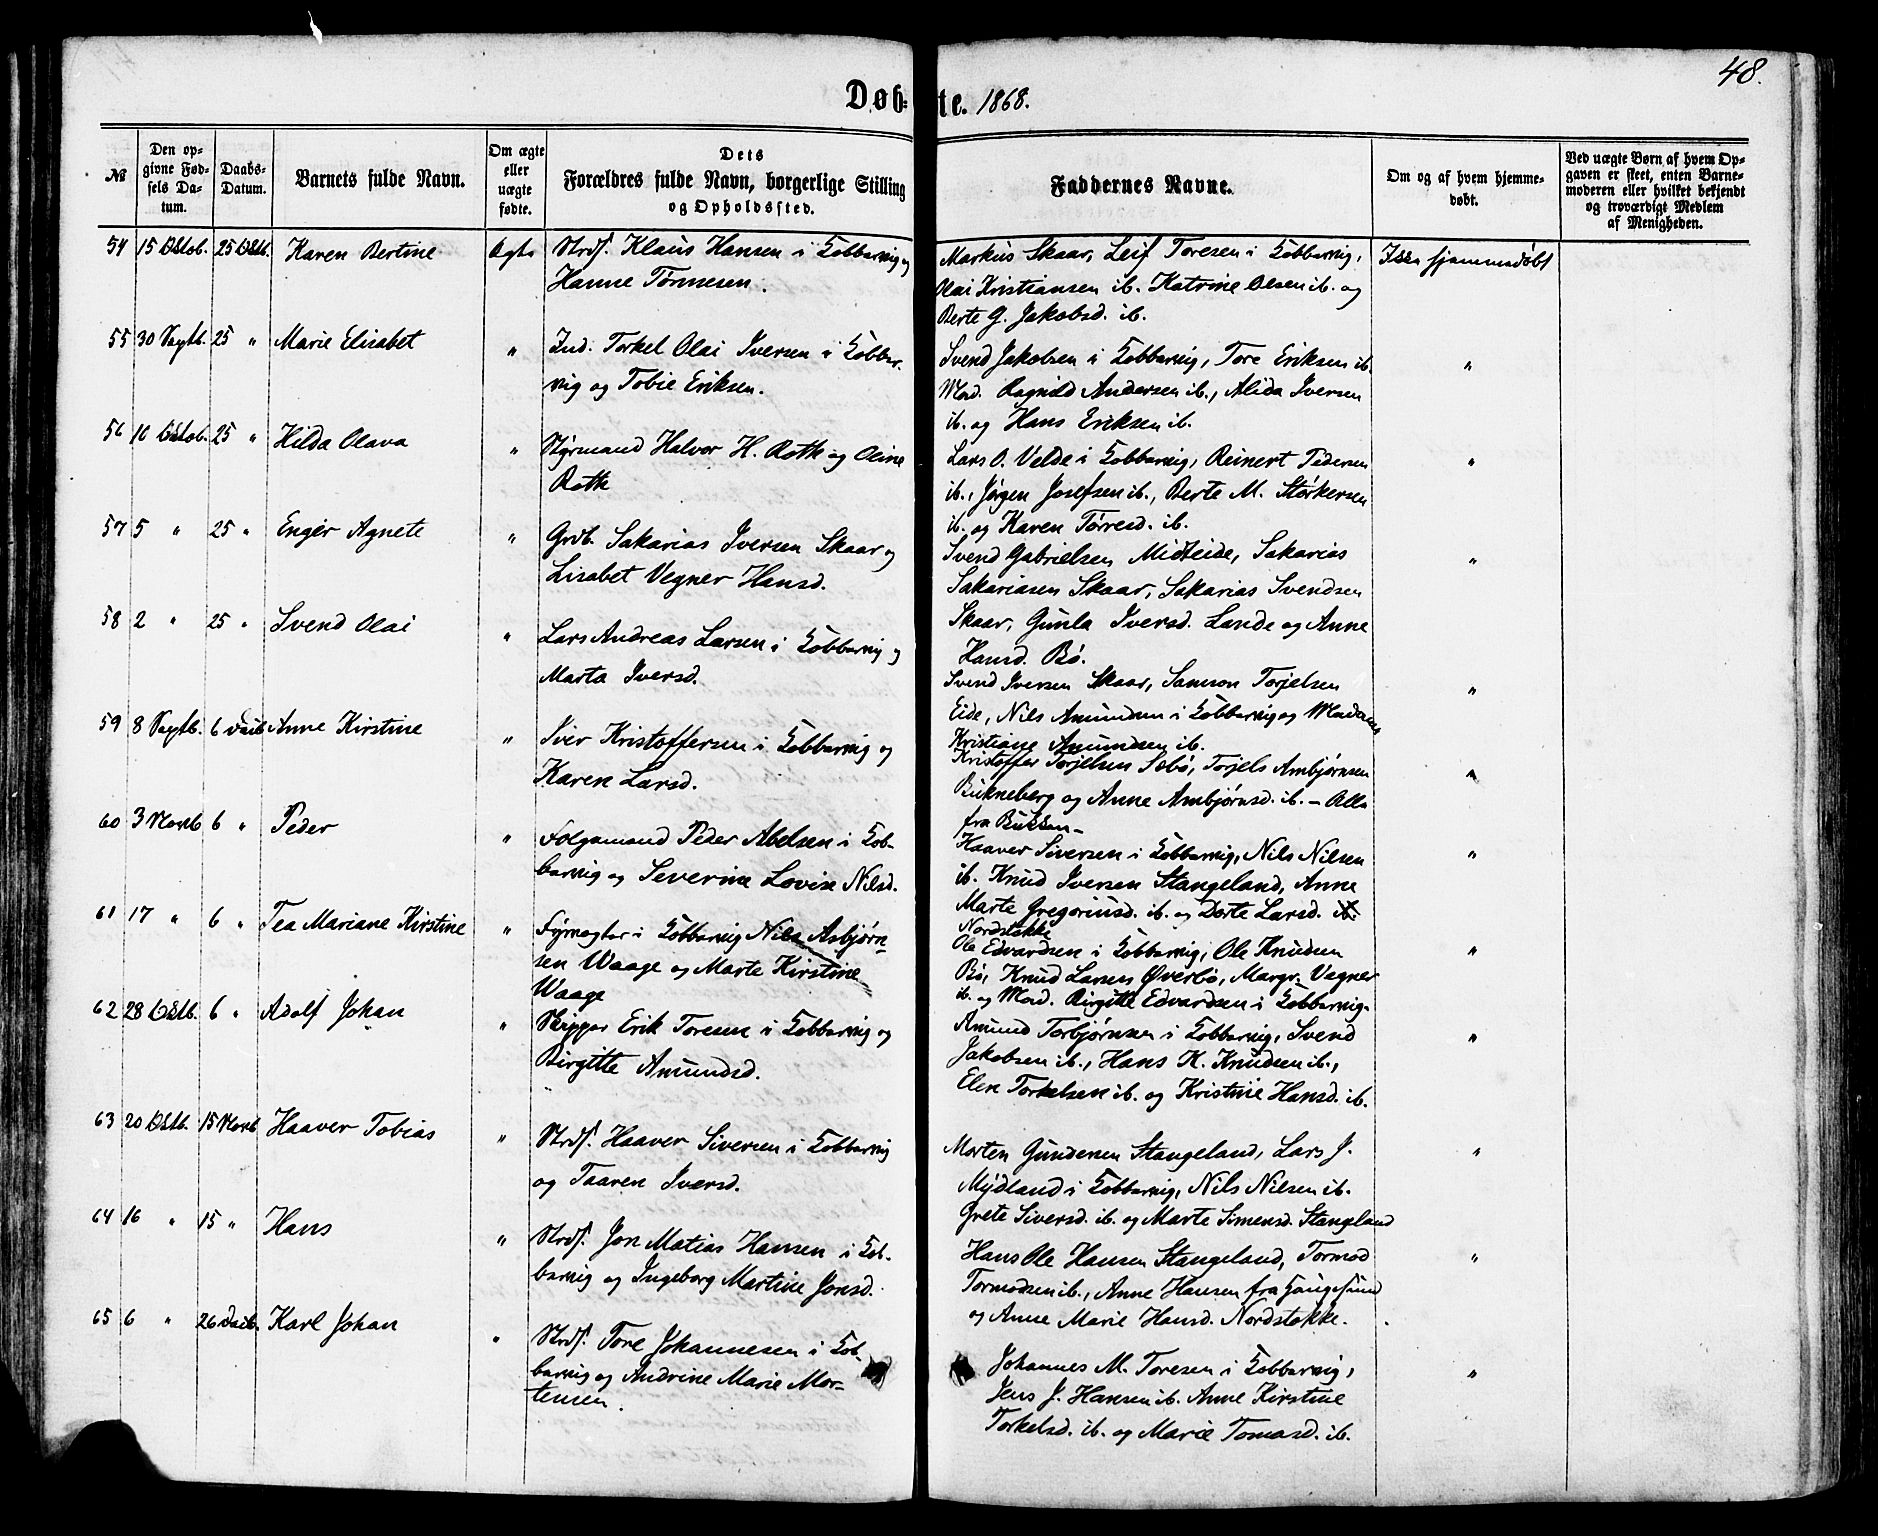 48.
Døb-te. 1868.
№
Den op-
givne Fød-
sels Da-
tum.
Daabs-
Datum.
Barnets fulde Navn.
Om ægte
eller
uægte
fødte.
Dets
Forældres fulde Navn, borgerlige Stilling
og Opholdssted.
Faddernes Navne.
Om og af hvem hjemme-
døbt.
Ved uægte Børn af hvem Op-
gaven er skeet, enten Barne-
moderen eller hvilket bekjendt
og troværdigt Medlem
af Menigheden.
54 15 Oktob. 25 Oktb. Karen Bertine Ægte Strds. Klaus Hansen i Kobbervig og
Hanne Tønnesen.
Markus Skaar, Leif Toresen i Kobbervig,
Olai Kristiansen ib. Katrine Olsen ib. og
Berte G. Jakobsd. ib.
Ikke hjemmedøbt
55 30 Septb. 25 " Marie Elisabet " Ind. Torkel Olai Iversen i Kobber-
vig og Tobie Eriksen.
Svend Jakobsen i Kobbervig, Tore Eriksen ib.
Mad. Ragnild Andersen ib., Alida Iversen
ib. og Hans Eriksen ib.
"
56 10 Oktob. 25 " Hilda Olava " Styrmand Halvor H. Roth og Oline
Roth
Lars O. Velde i Kobbervig, Reinert Pedersen
ib., Jørgen Josefsen ib., Berte M. Størkersen
ib. og Karen Tørresd. ib.
"
57 5 " 25 " Enger Agnete " Grdb. Sakarias Iversen Skaar og
Lisabet Vegner Hansd.
Svend Gabrielsen Midteide, Sakarias
Sakariasen Skaar, Sakarias Svendsen
Skaar, Gunla Iversd. Lande og Anne
Hansd. Bø.
"
58 2 " 25 " Svend Olai " Lars Andreas Larsen i Kobbervig og
Marta Iversd.
Svend Iversen Skaar, Samson Torjelsen
Eide, Nils Amundsen i Kobbervig og Madame
Kristiane Amundsen ib.
"
59 8 Septb. 6 Decb. Anne Kirstine " Iver Kristoffersen i Kobbervig og
Karen Larsd.
Kristoffer Torjelsen Sæbø, Torjels Ambjørnsen
Bukneberg og Anne Ambjørnsd. ib. – Alle
fra Bukken –
"
60 3 Novb 6 " Peder " Folgemand Peder Abelsen i Kob-
bervig og Severine Lovise Nilsd.
Haaver Siversen i Kobbervig, Nils Nilsen
ib. Knud Iversen Stangeland, Anne
Marte Gregoriusd. ib. og Dorte Larsd. ib.
Nordstokke
"
61 17 " 6 " Tea Mariane Kirstine " Fyrvogter i Kobbervig Nils Asbjørn-
sen Waage og Marte Kirstine
Waage
Ole Edvardsen i Kobbervig, Ole Knudsen
Bø, Knud Larsen Øverbø, Margr. Vegner
ib. og Mad. Birgitte Edvardsen i Kobbervig.
"
62 28 Oktb. 6 " Adolf Johan " Skipper Erik Toresen i Kobbervig og
Birgitte Amundsd.
Amund Torbjørnsen i Kobbervig, Svend
Jakobsen ib., Hans K. Knudsen ib.,
Elen Torkelsen ib. og Kristine Hansd. ib.
"
63 20 Oktb. 15 Novb Haaver Tobias " Strds. Haaver Siversen i Kobbervig
og Taaren Iversd.
Morten Gundersen Stangeland, Lars J.
Mydland i Kobbervig, Nils Nilsen ib.
Grete Siversd. ib. og Marte Simensd. Stangeland
"
64 16 " 15 " Hans " Strds. Jon Matias Hansen i Kob-
bervig og Ingeborg Martine Jonsd.
Hans Ole Hansen Stangeland, Tormod
Tormodsen ib., Anne Hansen fra Haugesund
og Anne Marie Hansd. Nordstokke.
"
65 6 " 26 Decb. Karl Johan " Strds. Tore Johannesen i Kob-
bervig og Andrine Marie Mor-
tensen.
Johannes M. Toresen i Kobbervig,
Jens J. Hansen ib. Anne Kirstine
Torkelsd. ib. og Marie Tomasd. ib.
"